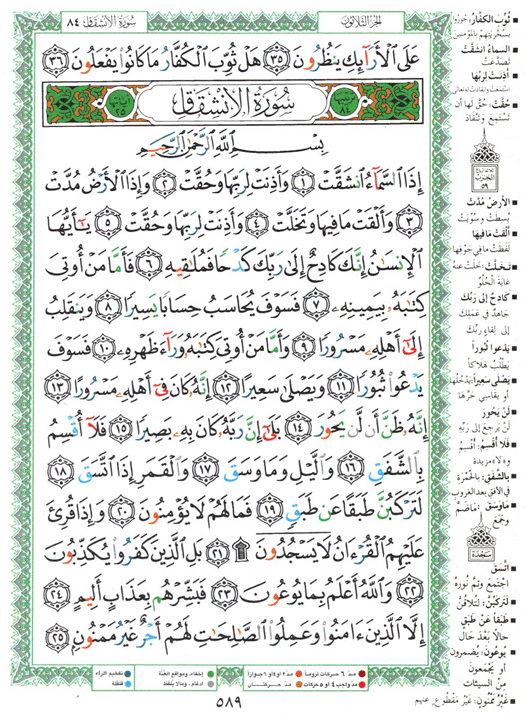 سورة الانشقاق ٨٤
الجزء الثلاثون
عَلَى ٱلْأَرَآئِكِ يَنظُرُونَ ٣٥ هَلْ ثُوِّبَ ٱلْكُفَّارُ مَا كَانُوا۟ يَفْعَلُونَ ٣٦
سُورَةُ الانْشِقَاقِ
بِسْمِ ٱللَّهِ ٱلرَّحْمَٰنِ ٱلرَّحِيمِ
إِذَا ٱلسَّمَآءُ ٱنشَقَّتْ ١ وَأَذِنَتْ لِرَبِّهَا وَحُقَّتْ ٢ وَإِذَا ٱلْأَرْضُ مُدَّتْ
٣ وَأَلْقَتْ مَا فِيهَا وَتَخَلَّتْ ٤ وَأَذِنَتْ لِرَبِّهَا وَحُقَّتْ ٥ يَٰٓأَيُّهَا
ٱلْإِنسَٰنُ إِنَّكَ كَادِحٌ إِلَىٰ رَبِّكَ كَدْحًا فَمُلَٰقِيهِ ٦ فَأَمَّا مَنْ أُوتِىَ
كِتَٰبَهُۥ بِيَمِينِهِۦ ٧ فَسَوْفَ يُحَاسَبُ حِسَابًا يَسِيرًا ٨ وَيَنقَلِبُ
إِلَىٰٓ أَهْلِهِۦ مَسْرُورًا ٩ وَأَمَّا مَنْ أُوتِىَ كِتَٰبَهُۥ وَرَآءَ ظَهْرِهِۦ ١٠ فَسَوْفَ
يَدْعُوا۟ ثُبُورًا ١١ وَيَصْلَىٰ سَعِيرًا ١٢ إِنَّهُۥ كَانَ فِىٓ أَهْلِهِۦ مَسْرُورًا ١٣
إِنَّهُۥ ظَنَّ أَن لَّن يَحُورَ ١٤ بَلَىٰٓ إِنَّ رَبَّهُۥ كَانَ بِهِۦ بَصِيرًا ١٥ فَلَآ أُقْسِمُ
بِٱلشَّفَقِ ١٦ وَٱلَّيْلِ وَمَا وَسَقَ ١٧ وَٱلْقَمَرِ إِذَا ٱتَّسَقَ ١٨
لَتَرْكَبُنَّ طَبَقًا عَن طَبَقٍ ١٩ فَمَا لَهُمْ لَا يُؤْمِنُونَ ٢٠ وَإِذَا قُرِئَ
عَلَيْهِمُ ٱلْقُرْءَانُ لَا يَسْجُدُونَ ۩ ٢١ بَلِ ٱلَّذِينَ كَفَرُوا۟ يُكَذِّبُونَ
٢٢ وَٱللَّهُ أَعْلَمُ بِمَا يُوعُونَ ٢٣ فَبَشِّرْهُم بِعَذَابٍ أَلِيمٍ ٢٤
إِلَّا ٱلَّذِينَ ءَامَنُوا۟ وَعَمِلُوا۟ ٱلصَّٰلِحَٰتِ لَهُمْ أَجْرٌ غَيْرُ مَمْنُونٍۭ ٢٥
ثُوِّبَ الكفّارُ: جُوزُوا
بسخريتهم بالمؤمنين
السماءُ انشقّت
تصدّعت
أذِنَتْ لِربِّها
استمعت وانقادت له تعالى
حُقّت: حُقّ لها أن
تستمع وتنقاد
الحزب
٥٩
الأرضُ مُدّت
بُسِطت وسُوّيت
ألقت ما فيها
لفظت ما في جوفها
تخلّت: خلت عنه
غاية الخلوّ
كادح إلى ربّك
جاهد في عملك
إلى لقاء ربّك
يدعو ثبورا
يطلب هلاكا
يصلى سعيرا: يدخلها
أو يقاسي حرّها
لن يحور
لن يرجع إلى ربّه
فلا أقسم: أقسم
و«لا» مزيدة
بالشّفق: بالحمرة
في الأفق بعد الغروب
ما وسق: ما ضمّ
وجمع
سجدة
اتّسق
اجتمع وتمّ نوره
لتركبنّ: لتلاقنّ
طبقا عن طبق
حالا بعد حال
يوعون: يضمرون
أو يجمعون
من السيئات
غير ممنون: غير مقطوع عنهم
مدّ ٦ حركات لزوماً
مدّ ٢ أو ٤ أو ٦ جوازاً
إخفاء، ومواقع الغنّة
تفخيم الراء
مدّ واجب ٤ أو ٥ حركات
مدّ حركتان
إدغام، وما لا يُلفظ
قلقلة
٥٨٩